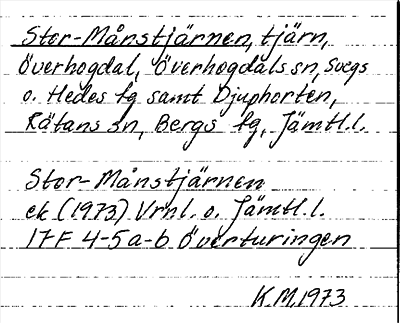 Stor-Månstjärnen, tjärn,
Överhogdal, Överhogdals sn, Svegs
o. Hedes tg samt Djuphorten,
Rätans sn, Bergs tg, Jämtl.l.
Stor-Månstjärnen
ek (1973) Vrnl. o. Jämtl.l.
17F 4-5a-b Överturingen
K.M.1973